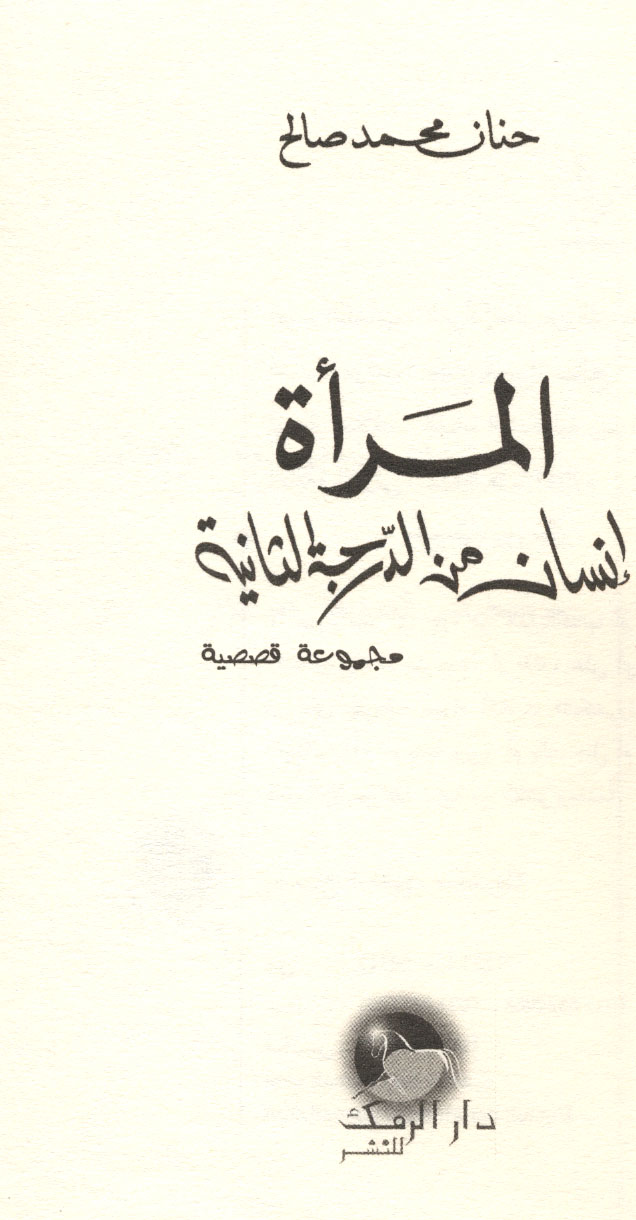 حنان محمد صالح
المَرأة
إنسان من الدّرجة الثانية
مجموعة قصصية
دار الرمك
للنشر